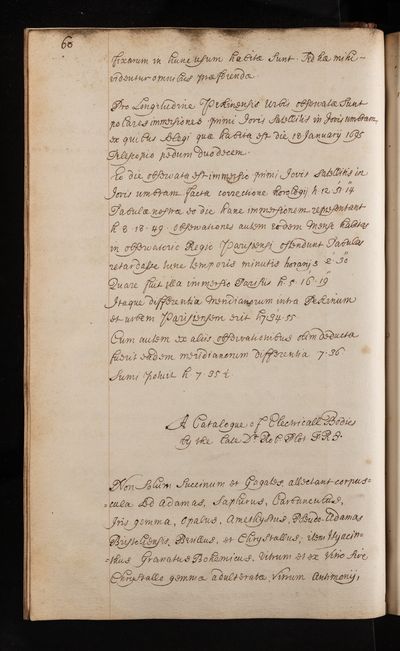 60
fixarum in hunc usum habitæ sunt. Sed hæ mihi
videntur omnibus præferendæ.
Pro Longitudine Pekinensis Urbis observatæ sunt
immersiones primi Jovis Satellitis in Jovis umbram,
ex quibus Elegi quæ habita est die 18 January 1695
Telescopio pedum duodecem.
Eo die observata est immersio primi Jovis Satellitis in
Jovis umbram facta correctione horologij h 12 51 14
Tabulæ nostræ eo die hanc immersionem repræsentant
h 8 . 18 . 49 observationes autem eodem mense habitæ
in observatorio Regio Parisiensi ostendunt Tabulas
retardasse tunc temporis minutis horarijs 2 30
Quare fuit illa immersio Parisijs h 5 16 19
Itaque differentia meridianorum intra Pekinum
et urbem Parisiensem erit h 7 34 55
Cum autem ex alijs observationibus olim deducta
fuerit eadem meridianorum differentia 7 . 36
sumi poterit h 7 . 35
A Catalogue of Electricall Bodies
by the late Dr Rob. Plot F.R.S.
Non Solum Succinum et Gagates, allectant corpus=
=cula sed Adamas, Saphirus, Carbunculus,
Iris gemma, Opalus, Amethystus, Pseudo-Adamas
Bristoliensis, Beryllus, et Chrystallus; item Hyacin=
=thus Granatus Bohemicus, Vitrum et ex vitro sive
Chrystallo gemmæ adulteratæ, Vitrum Antimonij,